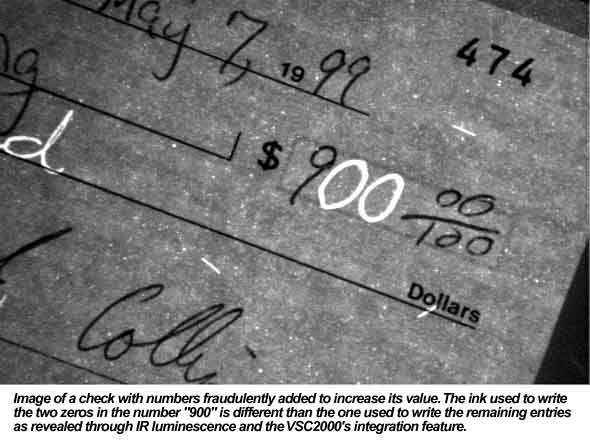 May 7, 1999
474
$ 900 00/100
d
Dollars
Colli
Image of a check with numbers fraudulently added to increase its value. The ink used to write
the two zeros in the number "900" is different than the one used to write the remaining entries
as revealed through IR luminescence and the VSC2000's integration feature.